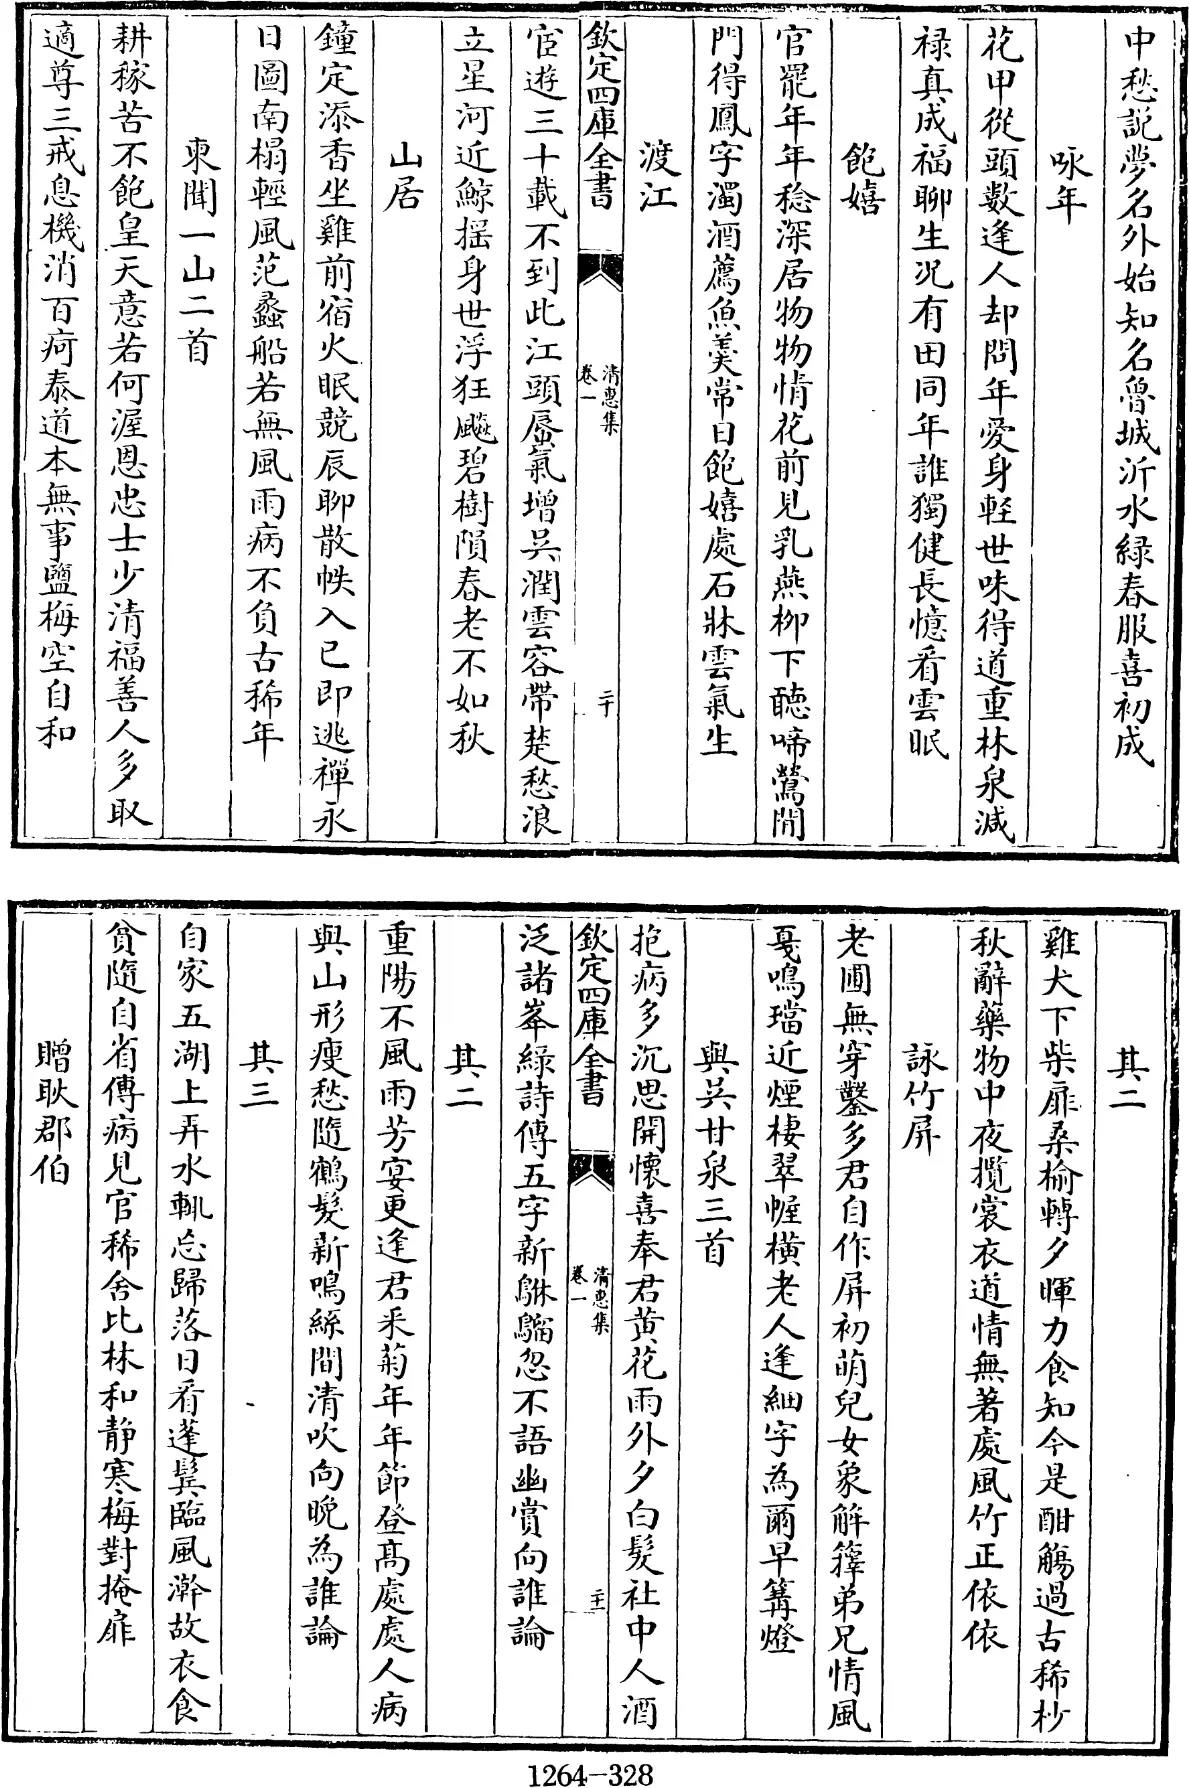 中愁説夢名外始知名魯城沂水緑春服喜初成
咏年
花甲從頭數逢人却問年愛身輕世味得道重林泉減
禄真成福聊生况有田同年誰獨健長憶看雲眠
飽嬉
官罷年年稔深居物物情花前見乳燕柳下聽啼鶯閒
門得鳳字濁酒薦魚羮常日飽嬉處石牀雲氣生
渡江
欽定四庫全書
清惠集
卷一
二十
宦遊三十載不到此江頭蜃氣增吳潤雲容帶楚愁浪
立星河近鯨揺身世浮狂飈碧樹隕春老不如秋
山居
鐘定添香坐雞前宿火眠競辰聊散帙入已即逃禪永
日圖南榻輕風范蠡船若無風雨病不負古稀年
柬聞一山二首
耕稼苦不飽皇天意若何渥恩忠士少清福善人多取
適尊三戒息機消百疴泰道本無事鹽梅空自和
其二
雞犬下柴扉桑榆轉夕暉力食知今是酣觴過古稀杪
秋辭藥物中夜攬裳衣道情無著處風竹正依依
詠竹屏
老圃無穿鑿多君自作屏初萌兒女象解籜弟兄情風
戞鳴璫近煙棲翠幄横老人逢細字為爾早篝燈
與吳甘泉三首
抱病多沉思開懷喜奉君黄花雨外夕白髮社中人酒
欽定四庫全書
清惠集
卷一
二十一
泛諸峯緑詩傳五字新鵂鶹忽不語幽賞向誰論
其二
重陽不風雨芳宴更逢君釆菊年年節登髙處處人病
與山形瘦愁隨鶴髮新鳴絲間清吹向晚為誰論
其三
自家五湖上弄水輒忘歸落日看蓬鬂臨風澣故衣食
貧隨自省傳病見官稀舍比林和静寒梅對掩扉
贈耿郡伯
1264-328